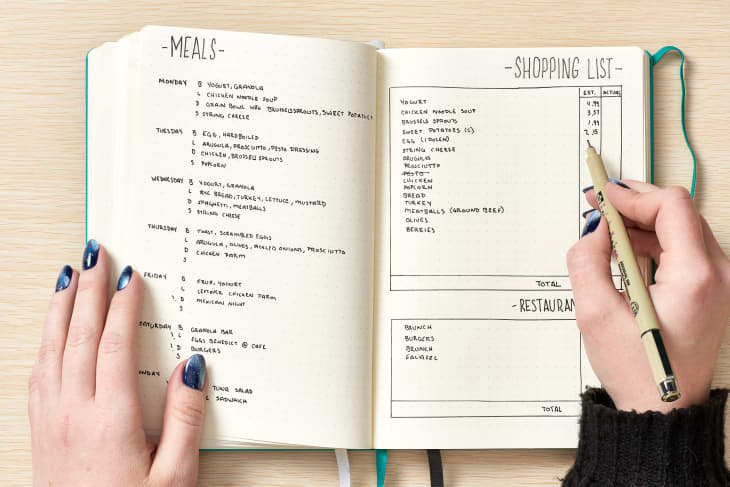 -MEALS-
MONDAY B YOGURT, GRANOLA
L CHICKEN NOODLE SOUP
D GRAIN BOWL W/ BRUSSELSSPROUTS, SWEET POTATOES
S STRING CHEESE
TUESDAY B EGG, HARDBOILED
L ARUGULA, PROSCIUTTO, PESTO DRESSING
D CHICKEN, BRUSSEL SPROUTS
S POPCORN
WEDNESDAY B YOGURT, GRANOLA
L RYE BREAD, TURKEY, LETTUCE, MUSTARD
D SPAGHETTI, MEATBALLS
S STRING CHEESE
THURSDAY B TOAST, SCRAMBLED EGGS
L ARUGULA, OLIVES, PICKLED ONIONS, PROSCIUTTO
D CHICKEN PARM
S
FRIDAY B FRUIT, YOGURT
L LEFTOVER CHICKEN PARM
D MEXICAN NIGHT
S
SATURDAY B GRANOLA BAR
L EGGS BENEDICT @ CAFE
D BURGERS
S
NDAY
TUNA SALAD
SADWAICH
-SHOPPING LIST-
EST. ACTUAL
YOGURT 4.99
CHICKEN NOODLE SOUP 3.57
BRUSSELS SPROUTS 1.99
SWEET POTATOES (2) 2.15
EGG (1 DOZEN)
STRING CHEESE
ARUGULA
PROSCIUTTO
PESTO
CHICKEN
POPCORN
BREAD
TURKEY
MEATBALLS (GROUND BEEF)
OLIVES
BERRIES
TOTAL
-RESTAURAN
BRUNCH
BURGERS
BRUNCH
FALAFEL
TOTAL